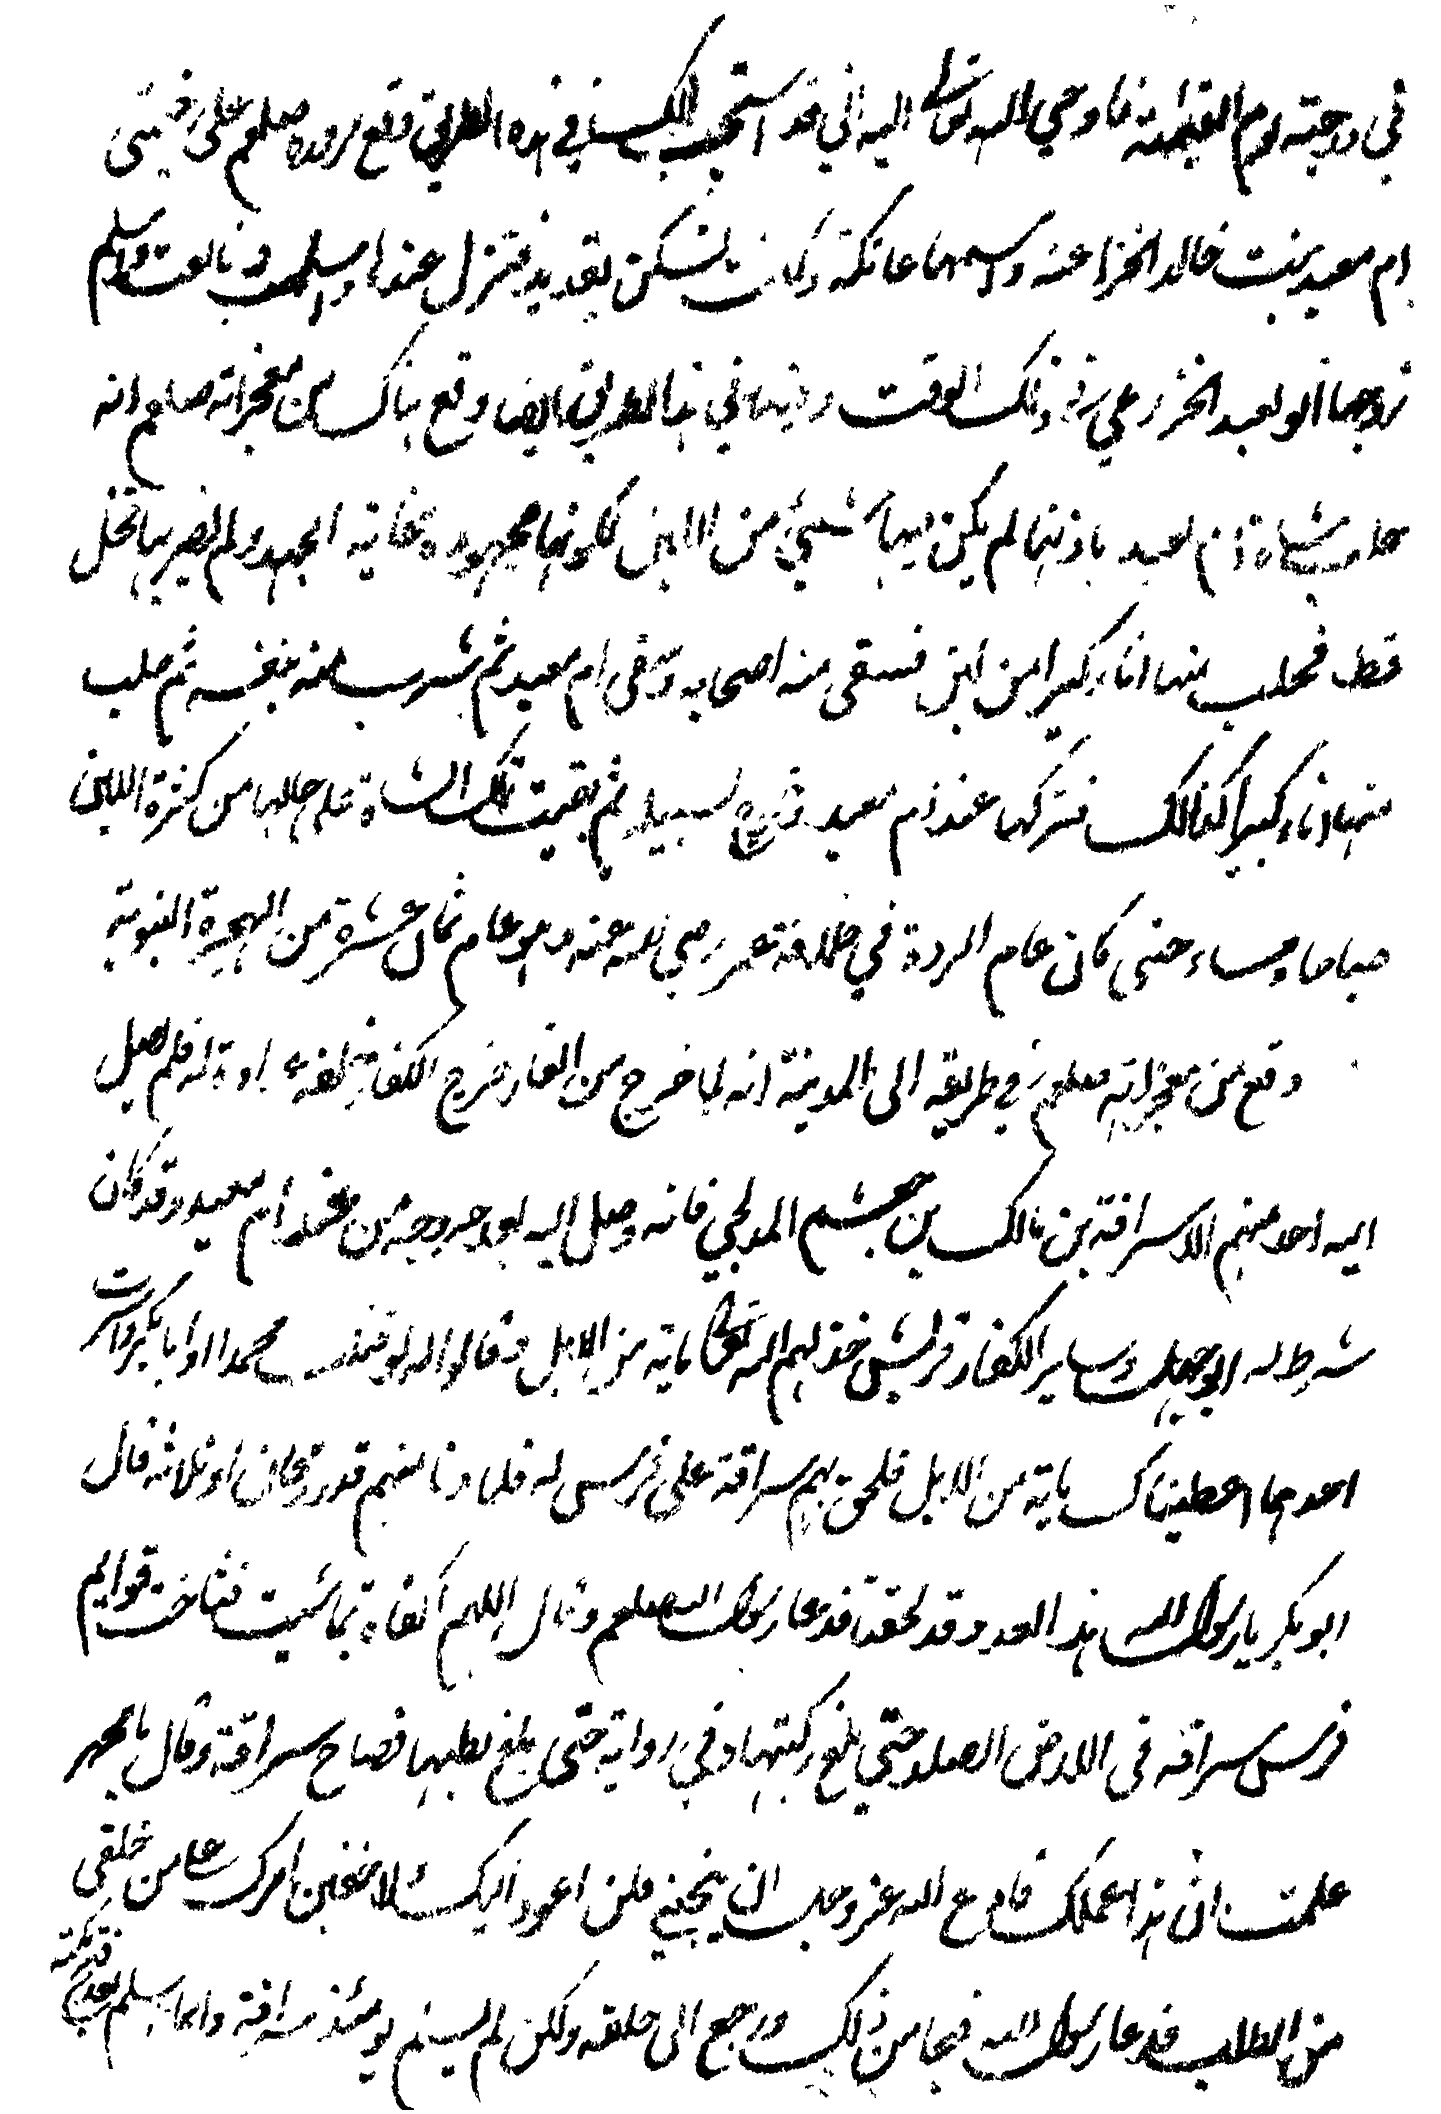 في درجته يوم القيامة فاوحي الله تعالى اليه اني قد استجبت لك في هذه الطريق وقع مروره صلعم على خيمتي
ام معبد بنت خالد الخزاعية واسمها عاتكة وكانت تسكن بقديد فنزل عندها واسلمت وبايعت واسلم
زوجها ابو معبد الخزاعي في ذلك الوقت وفيها في هذا الطريق ايضا وقع هناك من معجزاته صلعم انه
حلب شاة ام معبد باذنها لم يكن فيها شيئ من اللبن لكونها مجهودة بغاية الجهد ولم يضربها فحل
قط فحلب منها اناء كبيرا من لبن فسقى منه اصحابه وسقى ام معبد ثم شرب منه بنفسه ثم حلب
منها اناء كبيرا كذلك فتركها عند ام معبد لسبيله ثم بقيت تلك الشاة على حالها من كثرة اللبن
صباحا ومساء حتى كان عام الردة في خلافة عمر رضي الله عنه وهو عام ثمان عشرة من الهجرة النبوية
وقع من معجزاته صلعم في طريقه الى المدينة انه لما خرج من الغار خرج الكفار خلفه فلم يصل
اليه احد منهم الا سراقة بن مالك بن جعشم المدلجي فانه وصل اليه بعد خروجه من عند ام معبد وقد كان
شرط له ابو جهل وساير الكفار قريش خذلهم الله تعالى ماية من الابل وقالوا له لو قتلت محمدا او ابا بكر او اسرت
احدهما اعطيناك ماية من الابل فلحق بهم سراقة على فرس له فلما دنا منهم قدر رمحان او ثلاثه قال
ابو بكر يا رسول الله هذا العدو قد لحقنا فدعا رسول الله صلعم وقال اللهم اكفاه بما شئت فساخت قوايم
فرس سراقه في الارض الصلد حتي بلغ ركبتهها وفي رواية حتى بلغ بطنها فصاح سراقة وقال يا محمد
علمت ان هذا عملك فادع الله عز وجل ان ينجيني فلن اعود اليك ولاخفين امرك عامن خلفي
من الطلب فدعا رسول الله فنجا من ذلك ورجع الى خلفه ولكن لم يسلم يومئذ سراقة وانما اسلم بعد فتح مكة